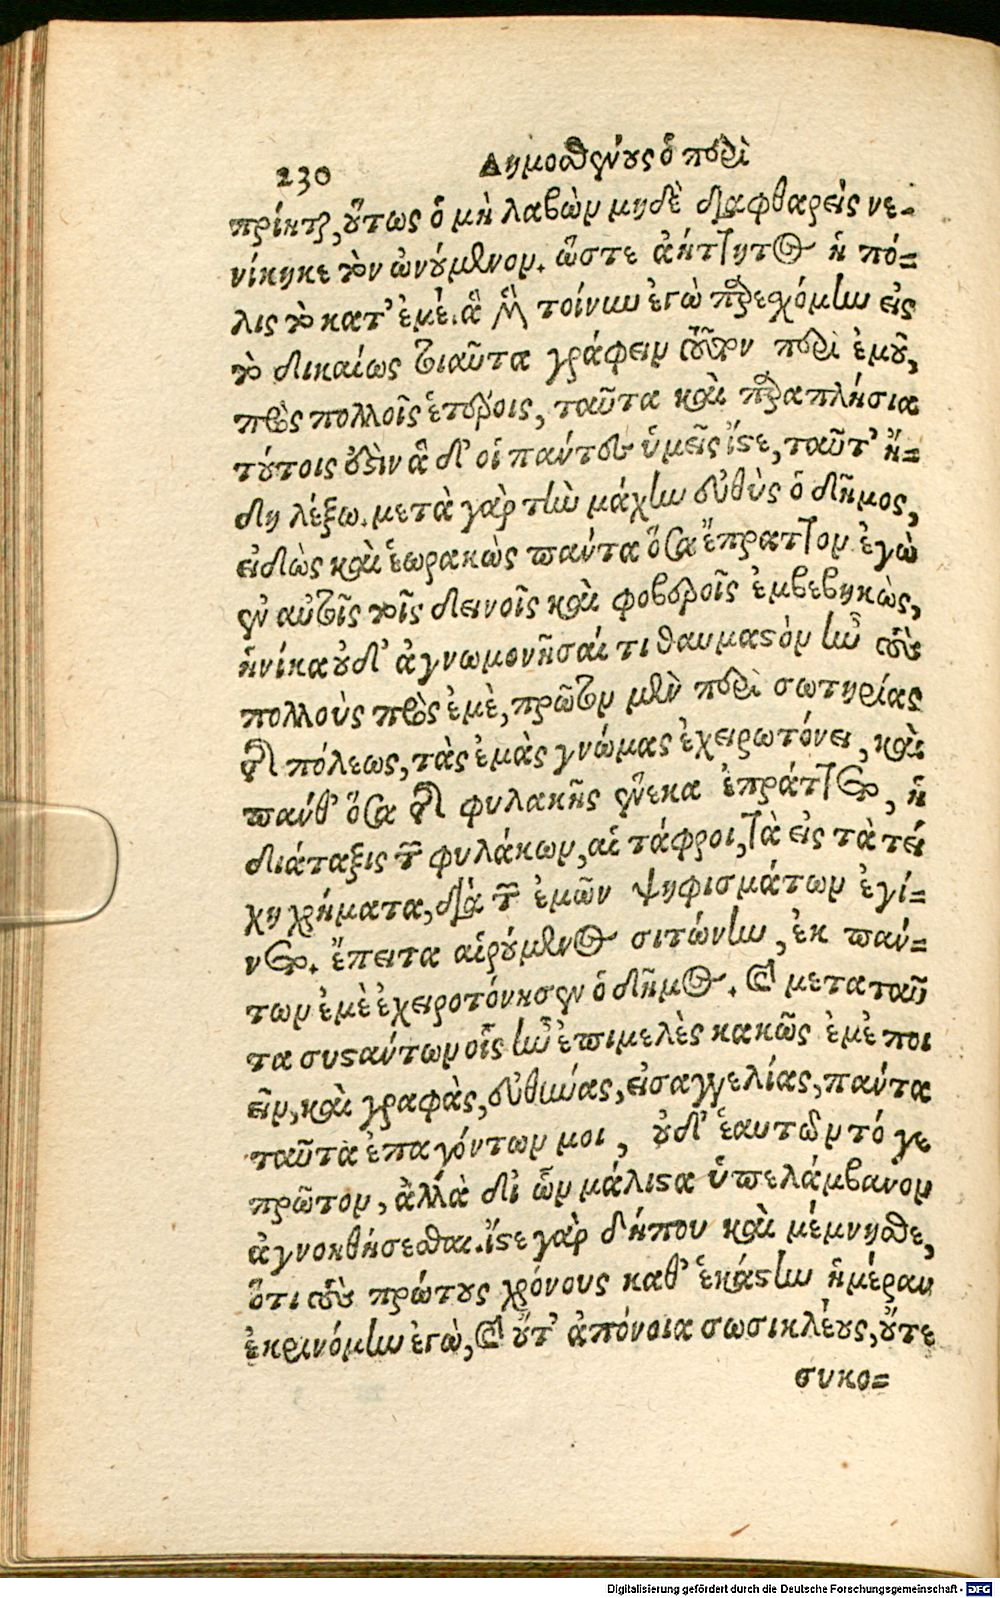 230 Δημοσθένους ὁ περὶ
πρίηται, οὕτως ὁ μὴ λαβὼν μηδὲ διαφθαρεὶς νε-
νίκηκε τὸν ὠνούμενον. ὥστε ἀήττητος ἡ πό-
λις τὸ κατ' ἐμέ. ἃ μὲν τοίνυν ἐγὼ παρεσχόμην εἰς
τὸ δικαίως τοιαῦτα γράφειν τοῦτον περὶ ἐμοῦ,
πρὸς πολλοῖς ἑτέροις, ταῦτα καὶ παραπλήσια
τούτοις ἐστὶν ἃ δ' οἱ πάντες ὑμεῖς ἴστε, ταῦτ' ἤ-
δη λέξω. μετὰ γὰρ τὴν μάχην εὐθὺς ὁ δῆμος,
εἰδὼς καὶ ἑωρακὼς πάντα ὅσα ἔπραττον ἐγὼ
ἐν αὐτοῖς τοῖς δεινοῖς καὶ φοβεροῖς ἐμβεβηκὼς,
ἡνίκα οὐδ' ἀγνωμονῆσαί τι θαυμαστὸν ἦν τοὺς
πολλοὺς πρὸς ἐμὲ, πρῶτον μὲν περὶ σωτηρίας
τῆς πόλεως, τὰς ἐμὰς γνώμας ἐχειρωτόνει, καὶ
πάνθ' ὅσα τῆς φυλακῆς ἕνεκα ἐπράττετο, ἡ
διάταξις τῶν φυλάκων, αἱ τάφροι, τὰ εἰς τὰ τεί
χη χρήματα, διὰ τῶν ἐμῶν ψηφισμάτων ἐγί-
νετο. ἔπειτα αἱρούμενος σιτώνην, ἐκ πάν-
των ἐμὲ ἐχειροτόνησεν ὁ δῆμος. καὶ μετα ταῦ
τα συστάντων οἷς ἦν ἐπιμελὲς κακῶς ἐμὲ ποι
εῖν, καὶ γραφὰς, εὐθύνας, εἰσαγγελίας, πάντα
ταῦτα ἐπαγόντων μοι, οὐδ' ἑαυτῶν τό γε
πρῶτον, ἀλλὰ δι ὧν μάλιστα ὑπελάμβανον
ἀγνοηθήσεσθαι. ἴστε γὰρ δήπου καὶ μέμνησθε,
ὅτι τοὺς πρώτους χρόνους καθ' ἑκάστην ἡμέραν
ἐκρινόμην ἐγὼ, καὶ οὔτ' ἀπόνοια σωσικλέους, οὔτε
συκο-
Digitalisierung gefördert durch die Deutsche Forschungsgemeinschaft - DFG